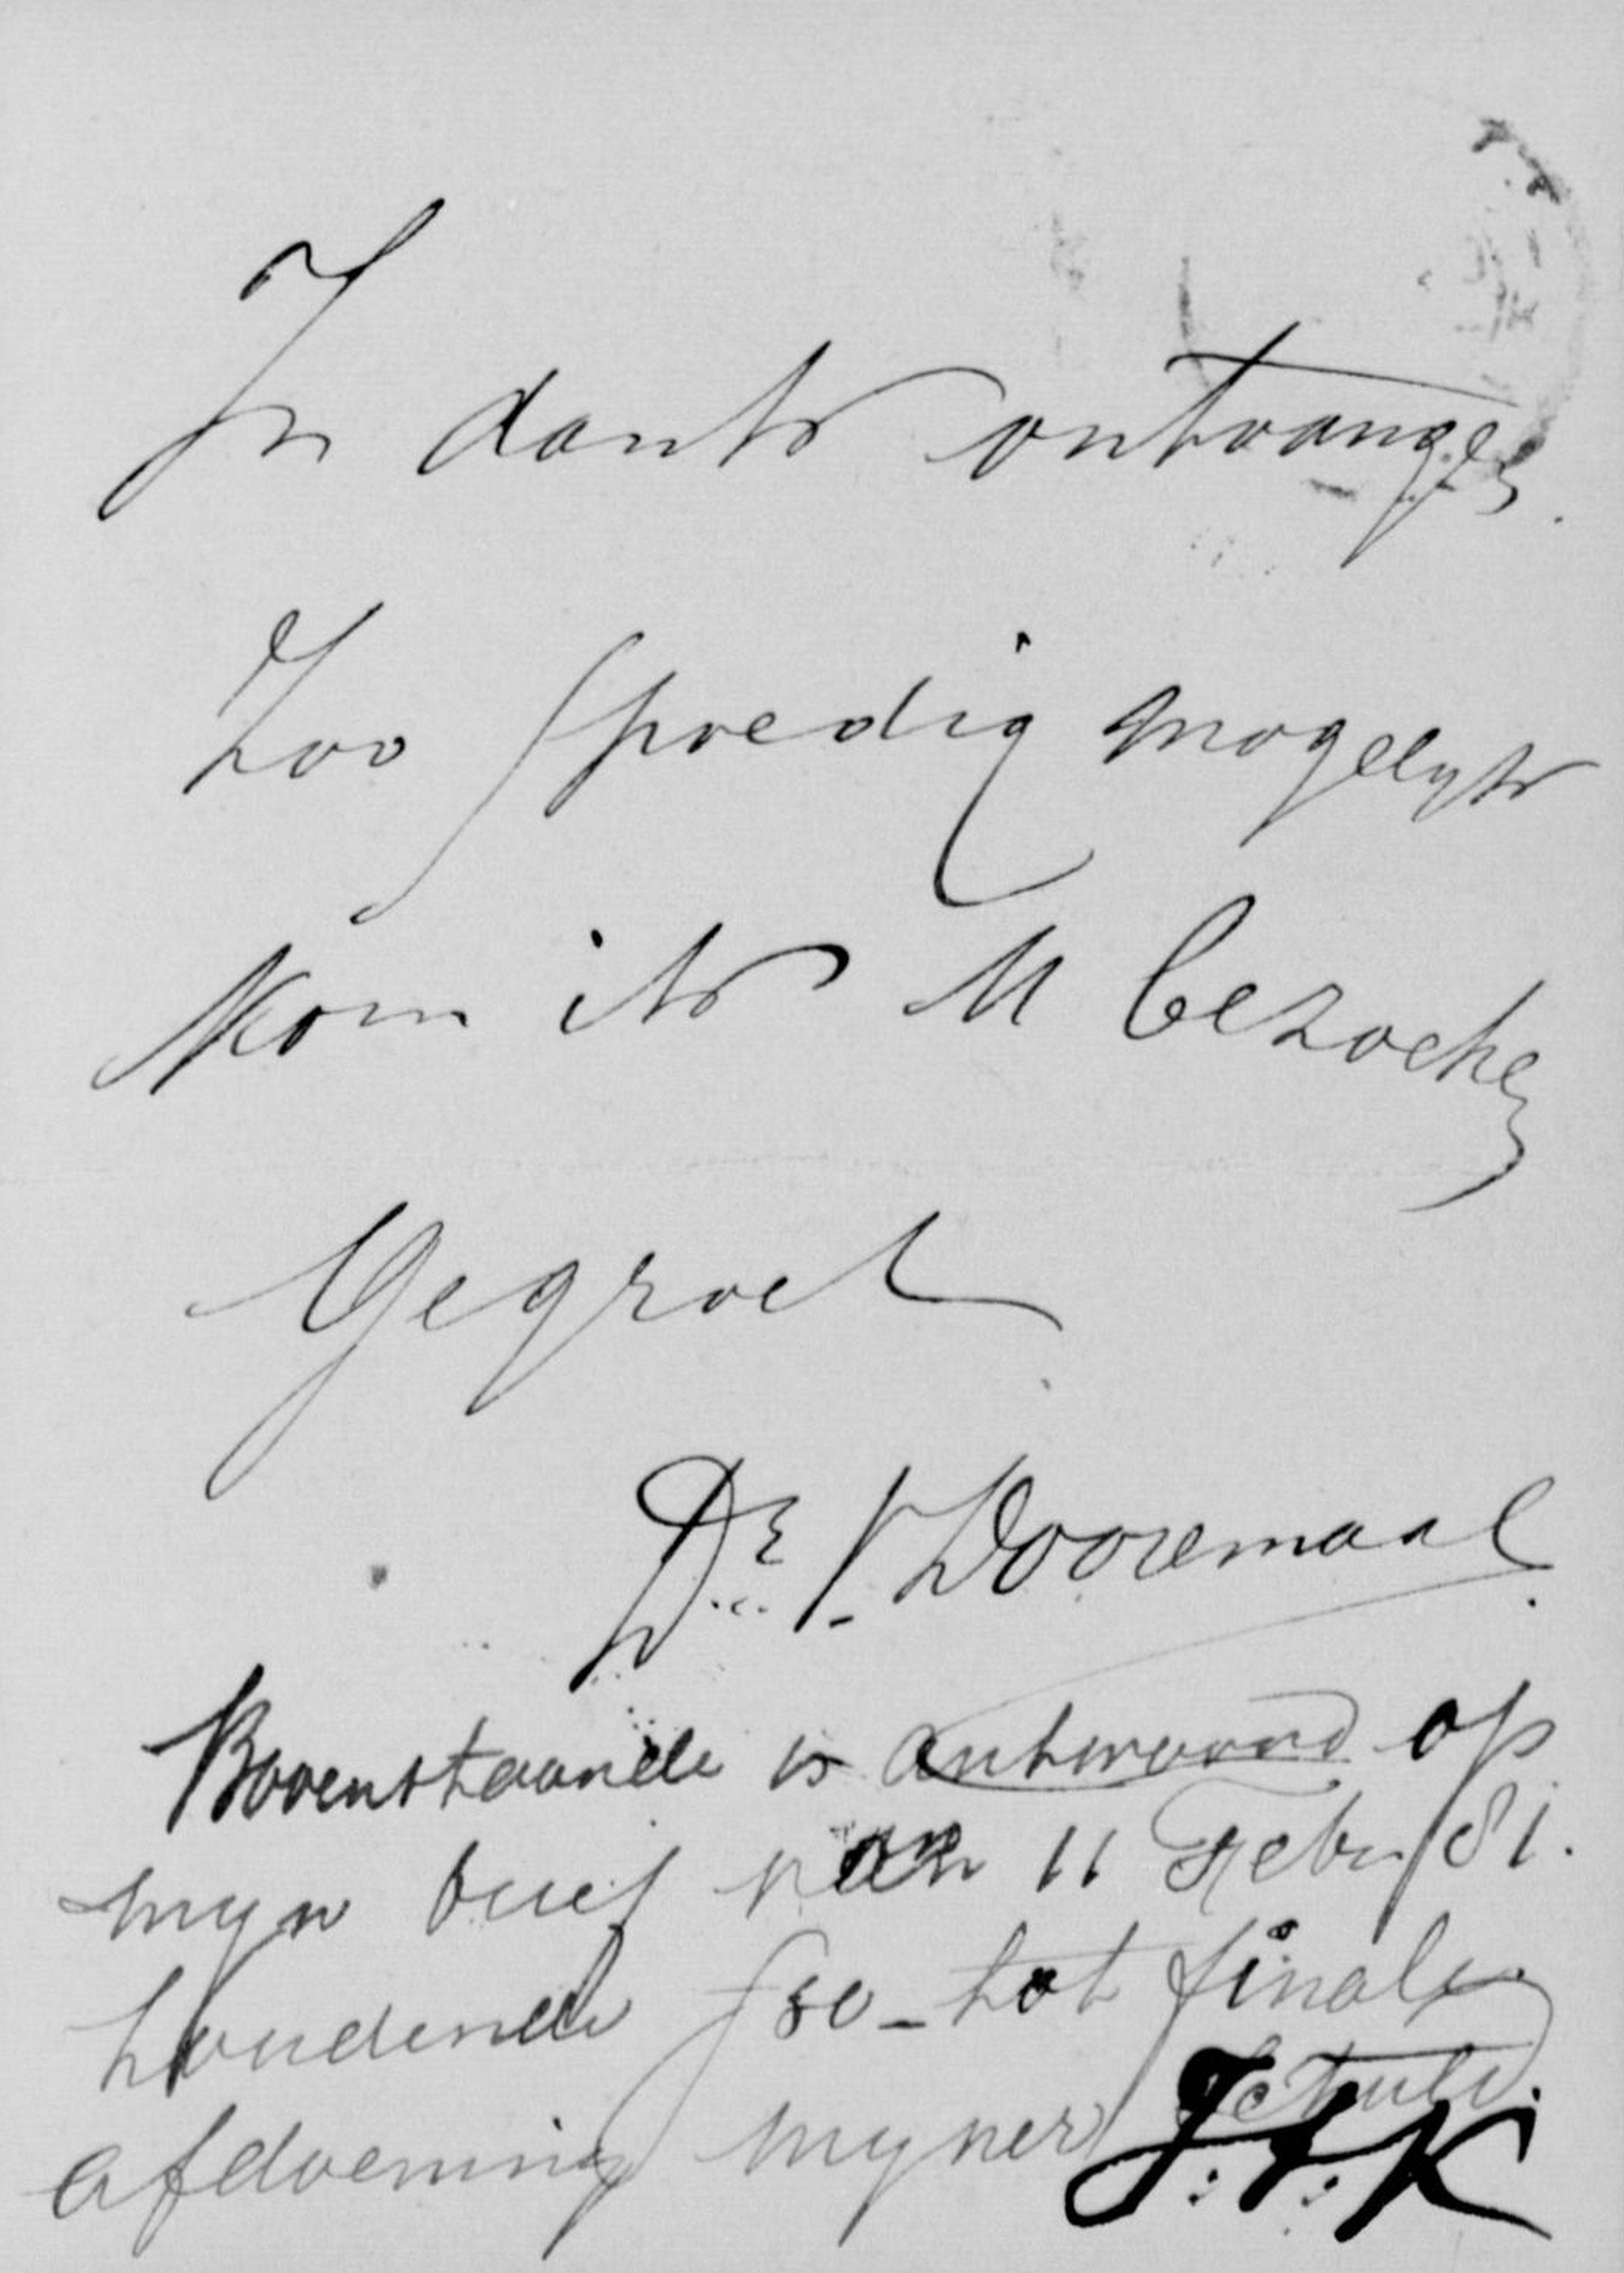 In dank ontvangen.
Zoo spoedig mogelyk
kom ik U bezoeken
Gegroet
Dr. v. Dooremaal.
Bovenstaande is antwoord op
myn brief van 11 Febr/81.
houdende f 80_ tot finale
afdoening myner schuld.
J.F.K